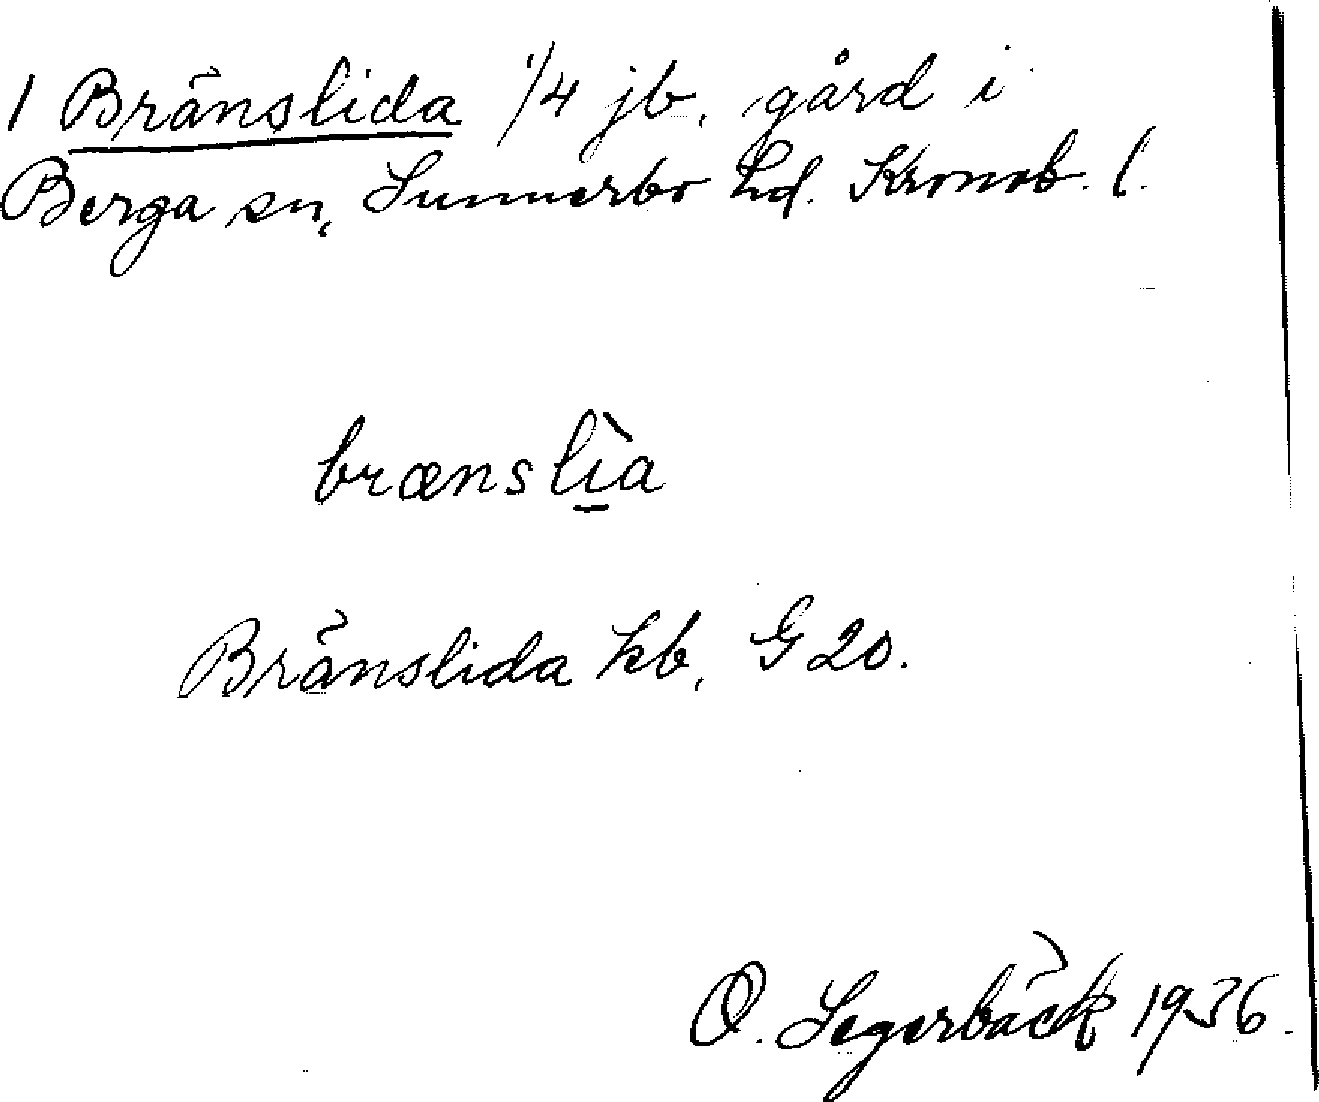 1 Bränslida 1/4 jb. gård i
Berga sn, Sunnerbo hd. Kronob. l.
brænslìa
Bränslida kb, G 20.
O. Segerbäck 1936.